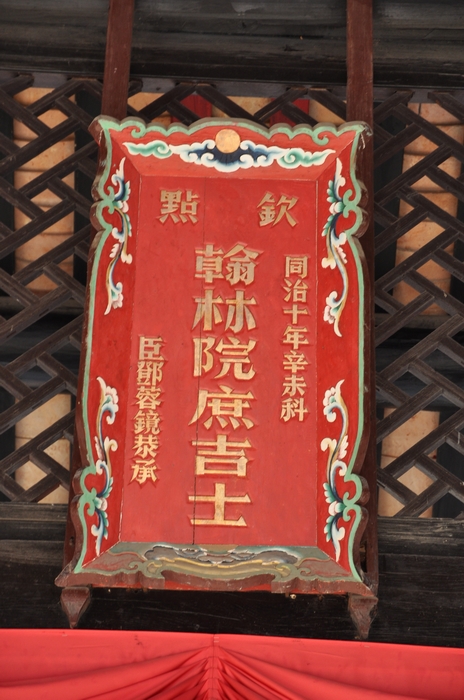 欽點
同治十年辛未科
翰林院庶吉士
臣鄧蓉鏡恭承